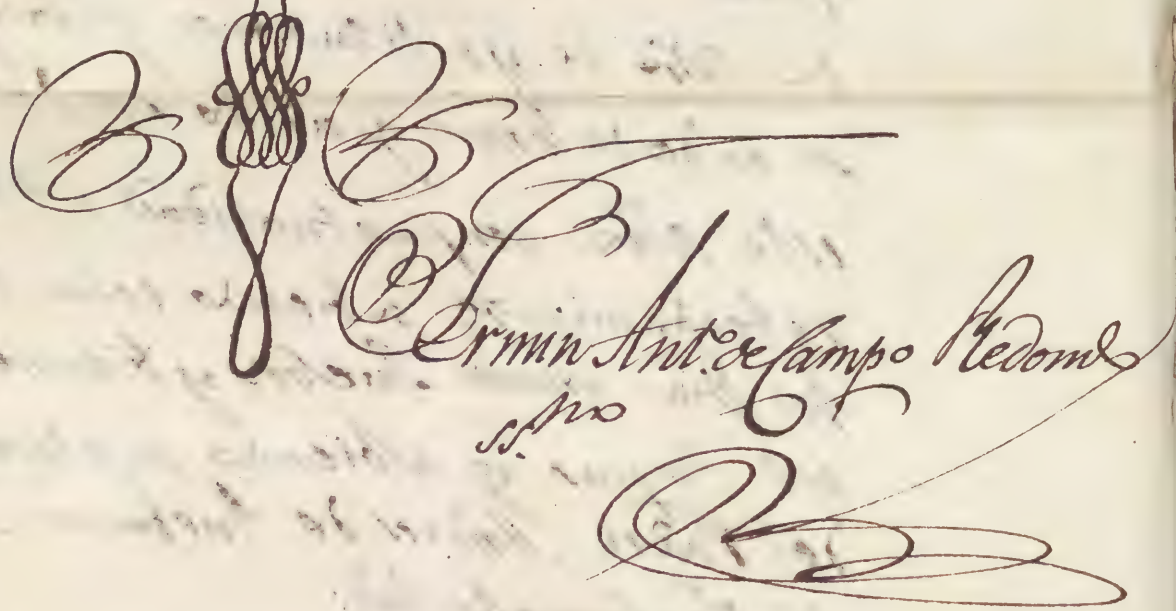 Fermin Ant.o de Campo Redondo
ss.no